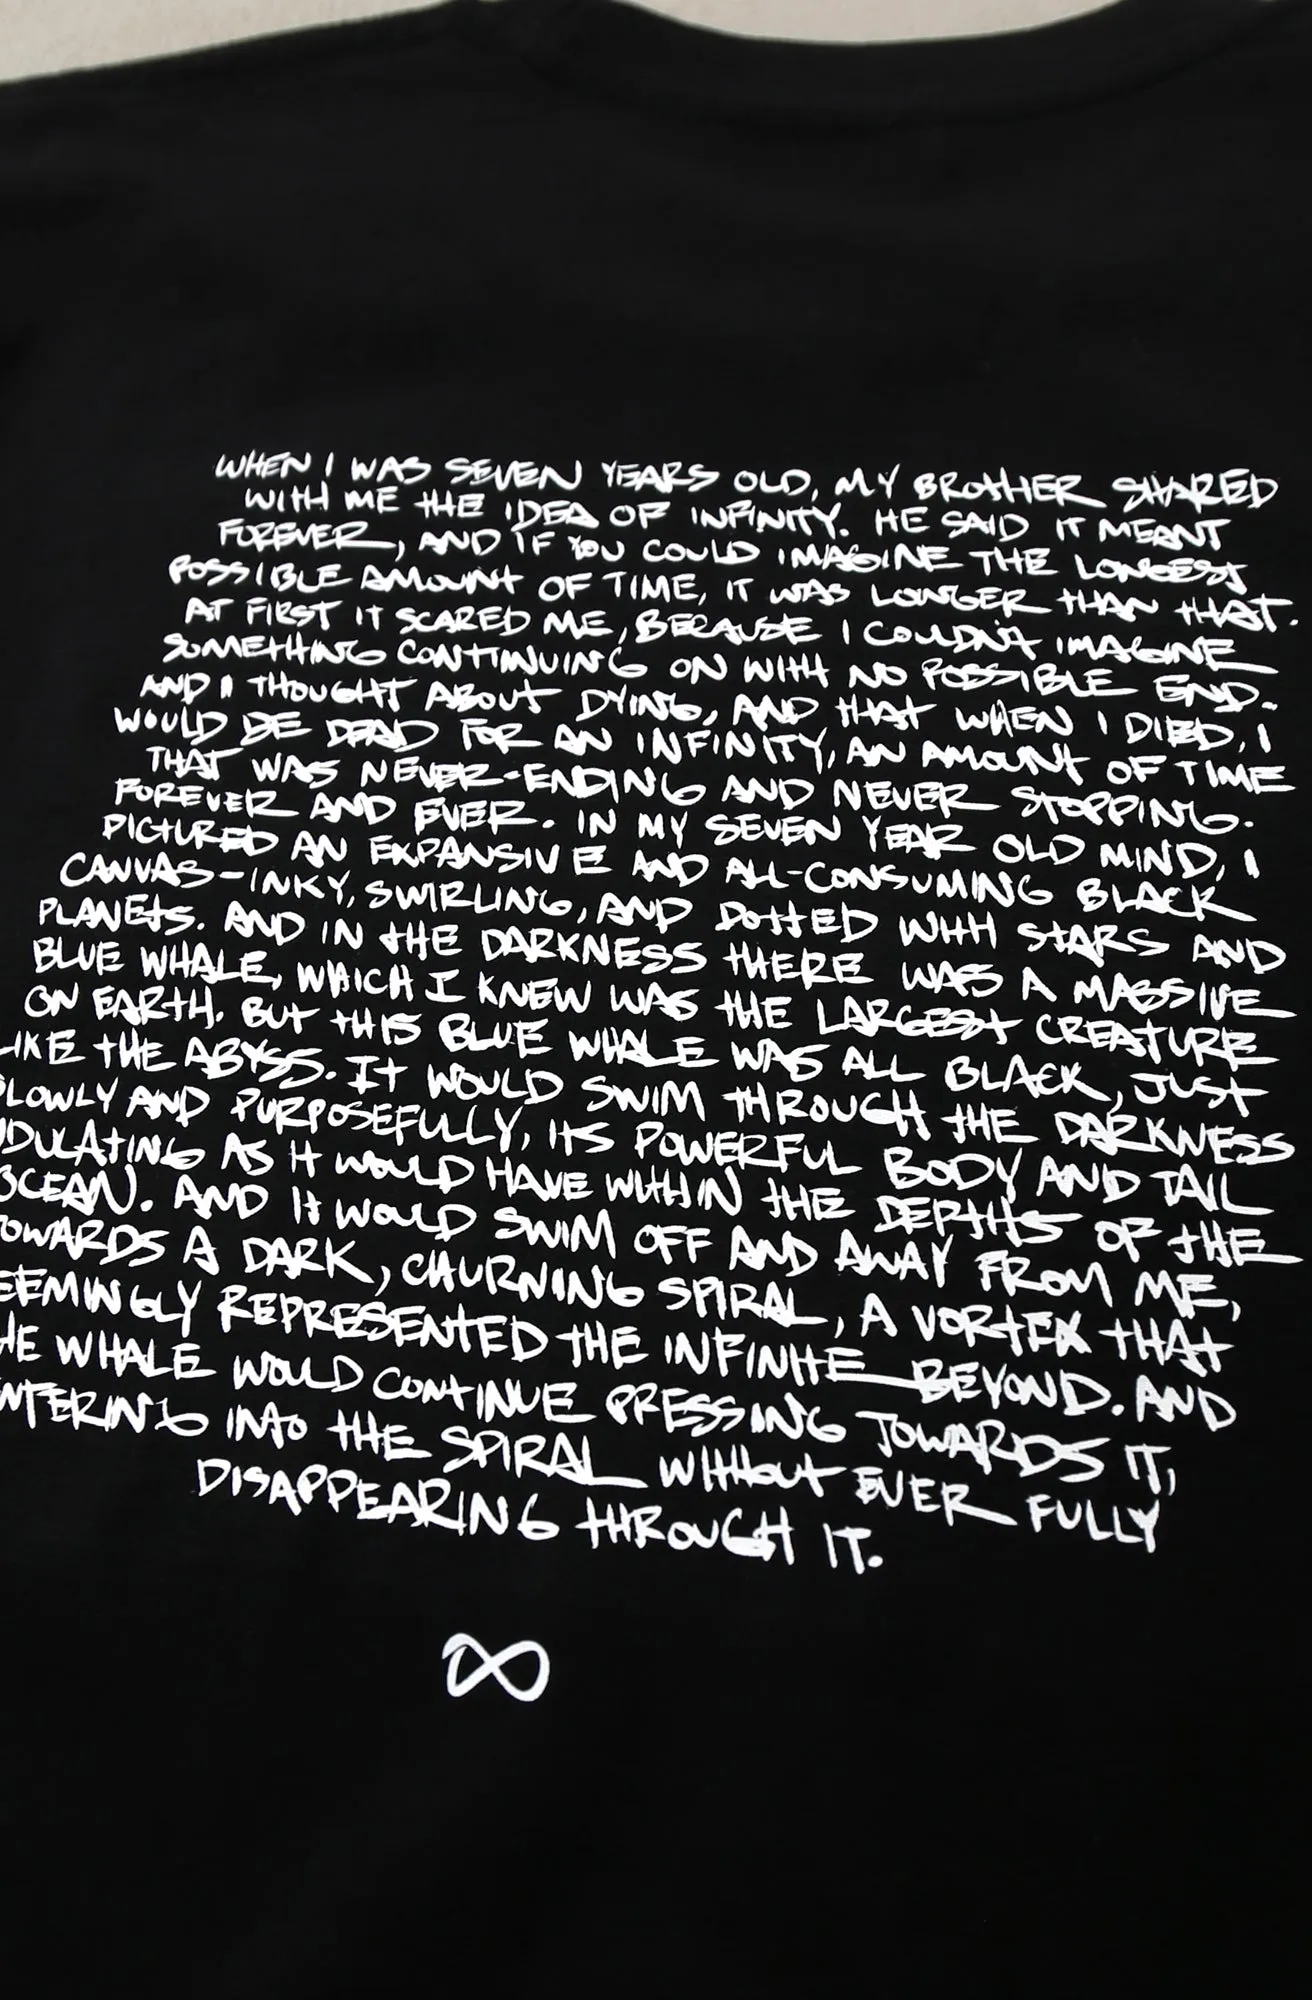 WHEN I WAS SEVEN YEARS OLD, MY BROTHER SHARED
WITH ME THE IDEA OF INFINITY. HE SAID IT MEANT
FOREVER, AND IF YOU COULD IMAGINE THE LONGEST
POSSIBLE AMOUNT OF TIME, IT WAS LONGER THAN THAT.
AT FIRST IT SCARED ME, BECAUSE I COULDN'T IMAGINE
SOMETHING CONTINUING ON WITH NO POSSIBLE END.
AND I THOUGHT ABOUT DYING, AND THAT WHEN I DIED, I
WOULD BE DEAD FOR AN INFINITY, AN AMOUNT OF TIME
THAT WAS NEVER-ENDING AND NEVER STOPPING.
FOREVER AND EVER. IN MY SEVEN YEAR OLD MIND, I
PICTURED AN EXPANSIVE AND ALL-CONSUMING BLACK
CANVAS-INKY, SWIRLING, AND DOTTED WITH STARS AND
PLANETS. AND IN THE DARKNESS THERE WAS A MASSIVE
BLUE WHALE, WHICH I KNEW WAS THE LARGEST CREATURE
ON EARTH. BUT THIS BLUE WHALE WAS ALL BLACK, JUST
LIKE THE ABYSS. IT WOULD SWIM THROUGH THE DARKNESS
SLOWLY AND PURPOSEFULLY, ITS POWERFUL BODY AND TAIL
DULATING AS IT WOULD HAVE WITHIN THE DEPTHS OF THE
OCEAN. AND IT WOULD SWIM OFF AND AWAY FROM ME,
OWARDS A DARK, CHURNING SPIRAL, A VORTEX THAT
EEMINGLY REPRESENTED THE INFINITE BEYOND. AND
HE WHALE WOULD CONTINUE PRESSING TOWARDS IT,
NTERING INTO THE SPIRAL WITHOUT EVER FULLY
DISAPPEARING THROUGH IT.
∞